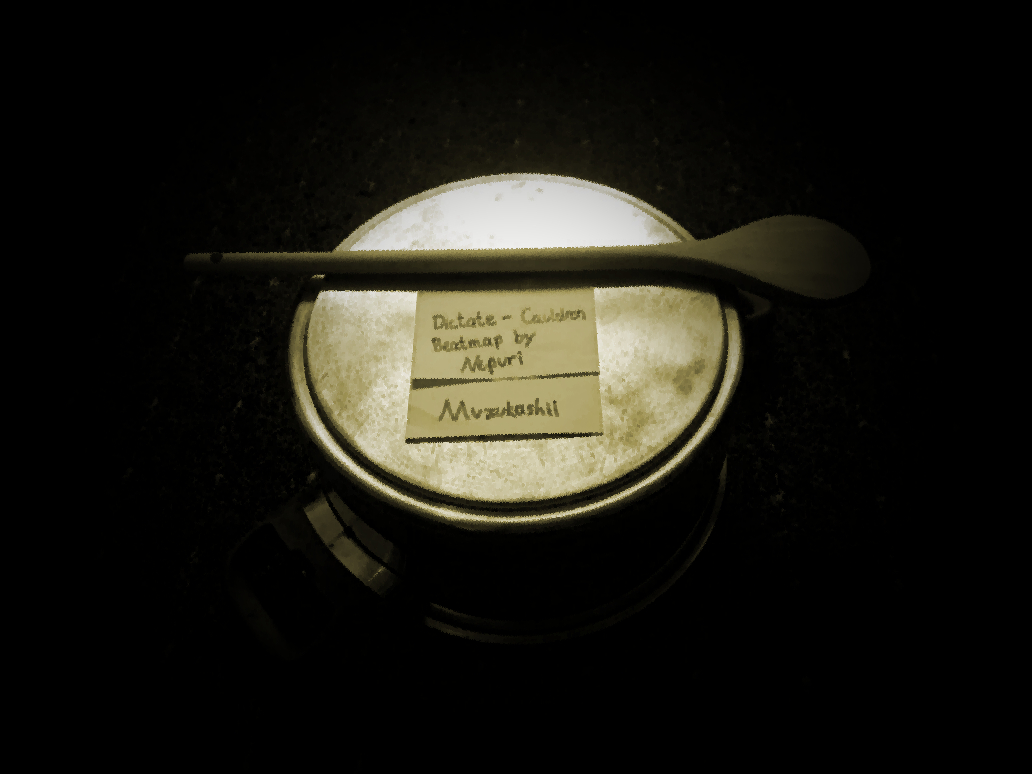 Dictate - Cauldron
Beatmap by
Nepuri
Muzukashii